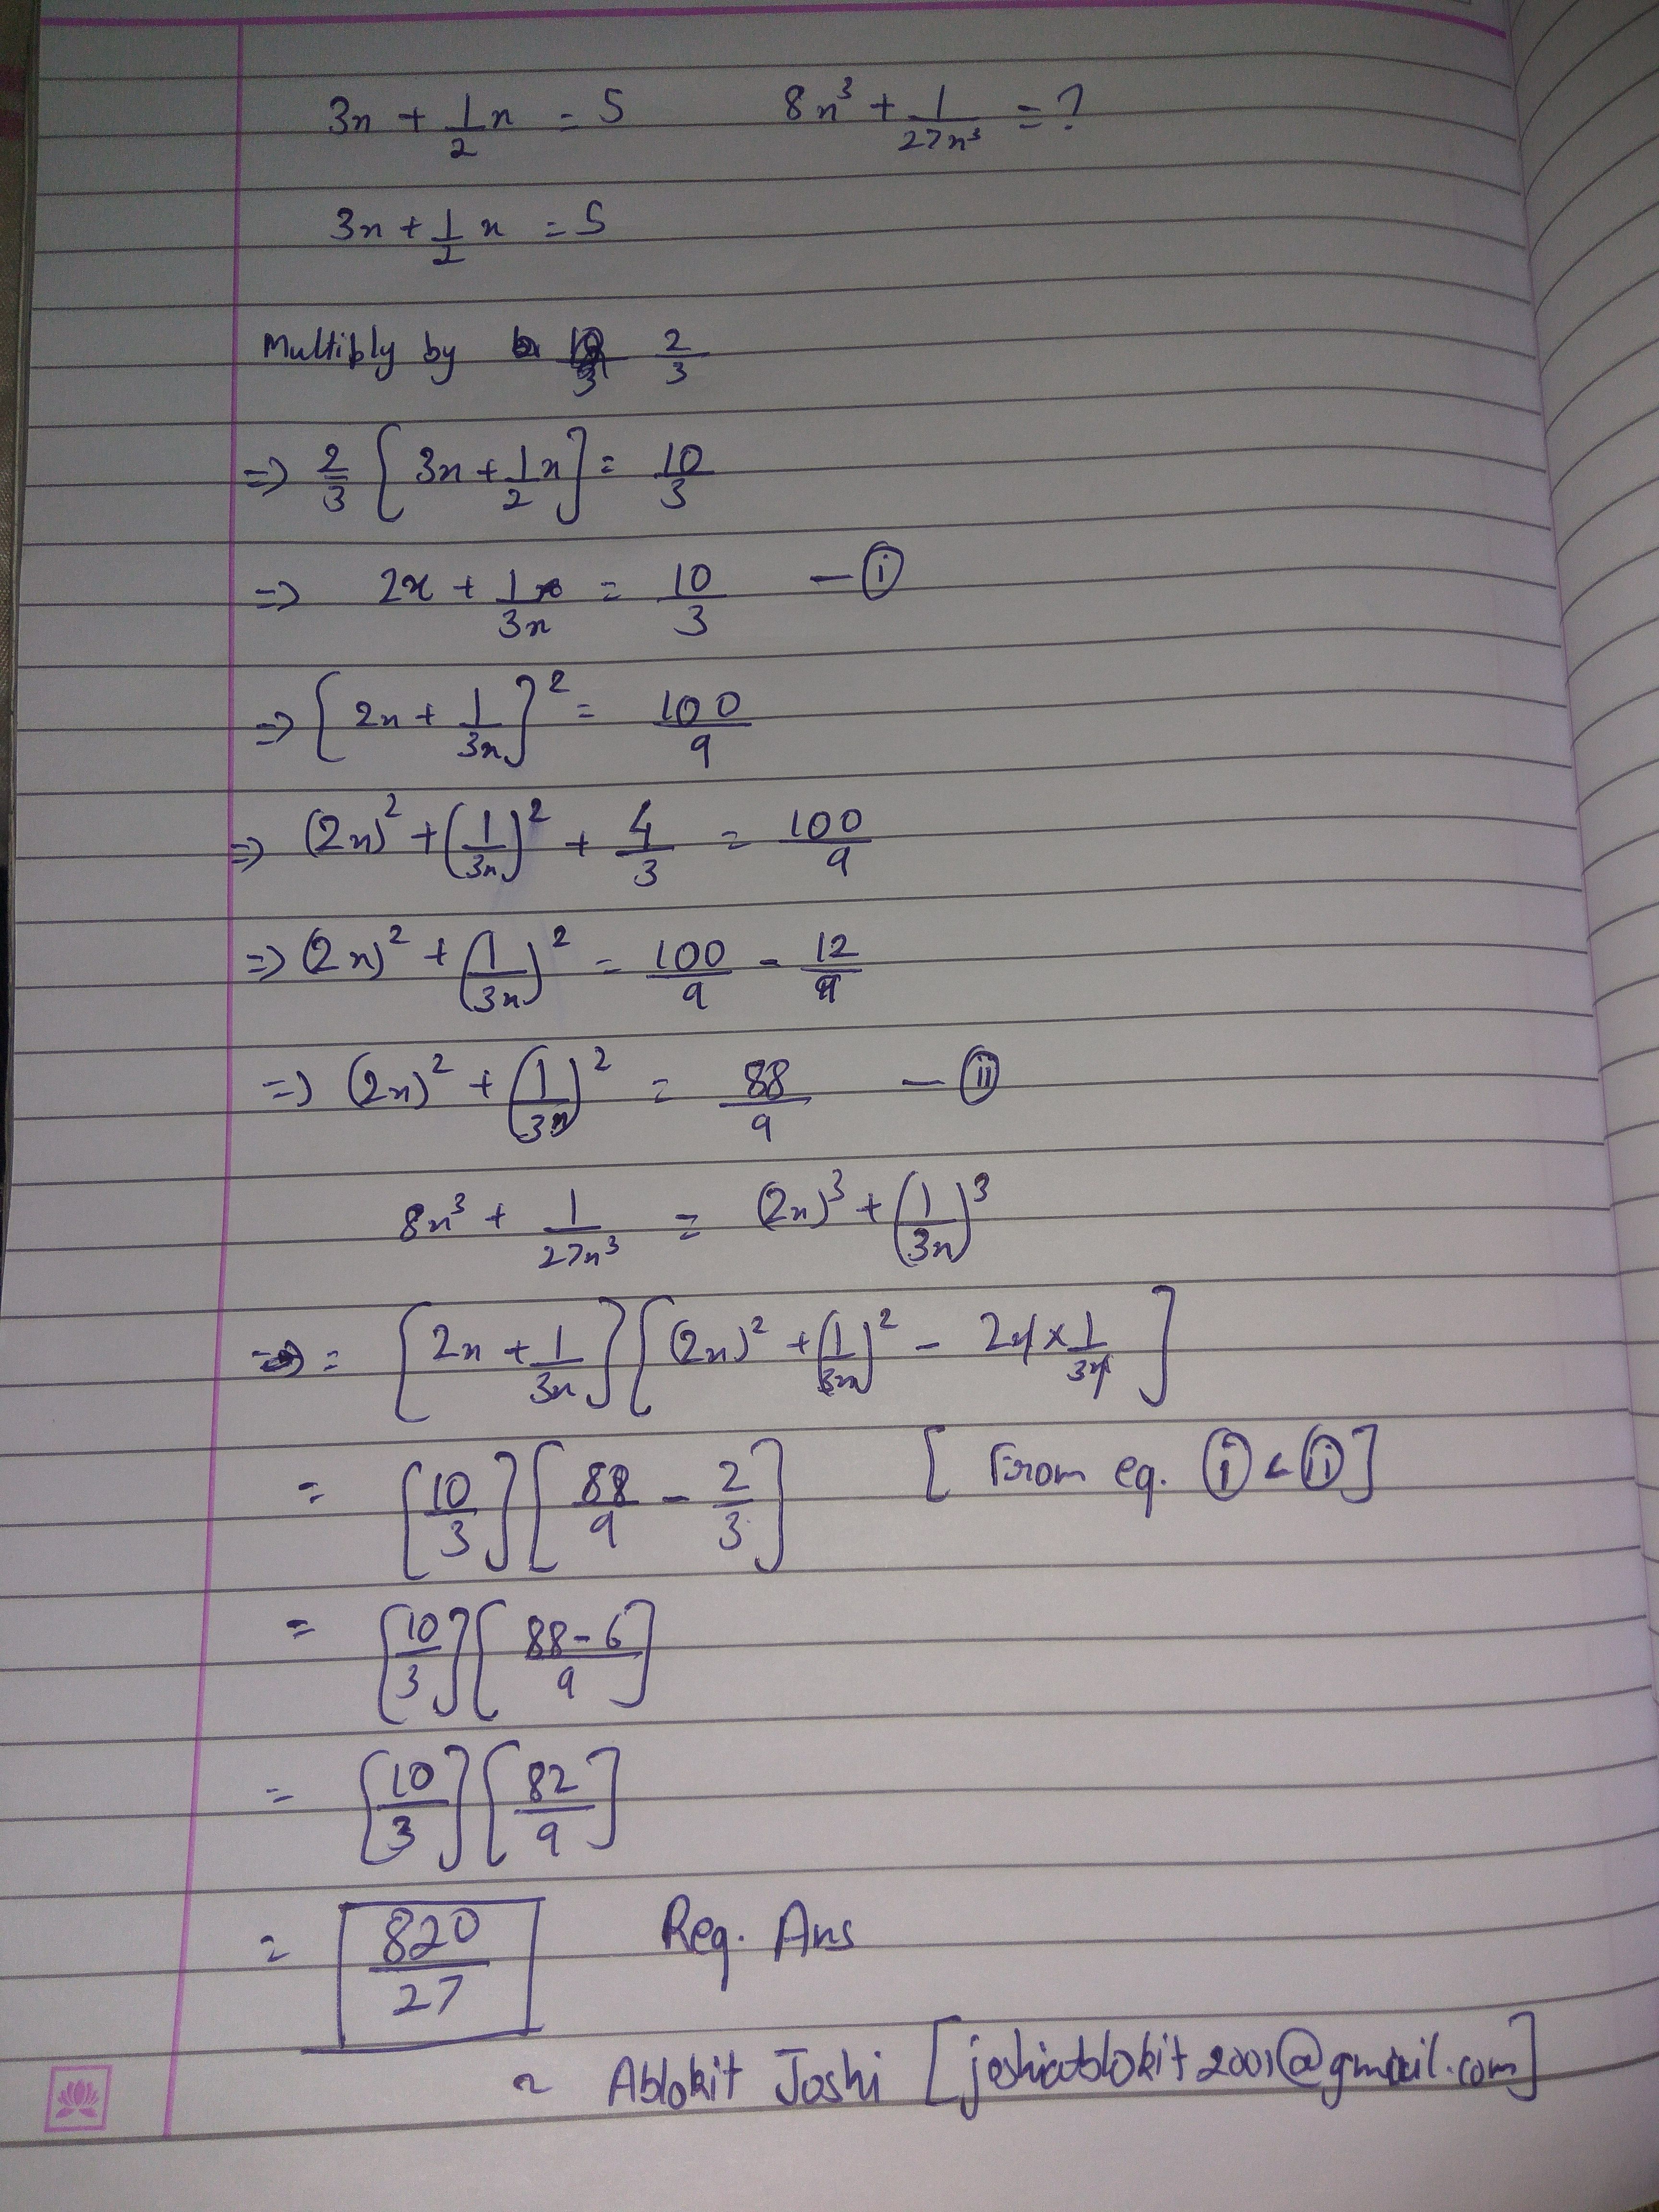 3x + 1/2 x = 5 8x³ + 1/27x³ = ?
3x + 1/2 x = 5
Multiply by 2/3
⇒ 2/3 [3x + 1/2 x] = 10/3
⇒ 2x + 1/3x = 10/3 — (i)
⇒ [2x + 1/3x]² = 100/9
⇒ (2x)² + (1/3x)² + 4/3 = 100/9
⇒ (2x)² + (1/3x)² = 100/9 - 12/9
⇒ (2x)² + (1/3x)² = 88/9 — (ii)
8x³ + 1/27x³ = (2x)³ + (1/3x)³
= [2x + 1/3x] [(2x)² + (1/3x)² - 2x × 1/3x]
= [10/3] [88/9 - 2/3] [From eq. (i) & (ii)]
= [10/3] [88-6/9]
= [10/3] [82/9]
= 820/27 Req. Ans
~ Ablokit Joshi [joshiablokit2001@gmail.com]